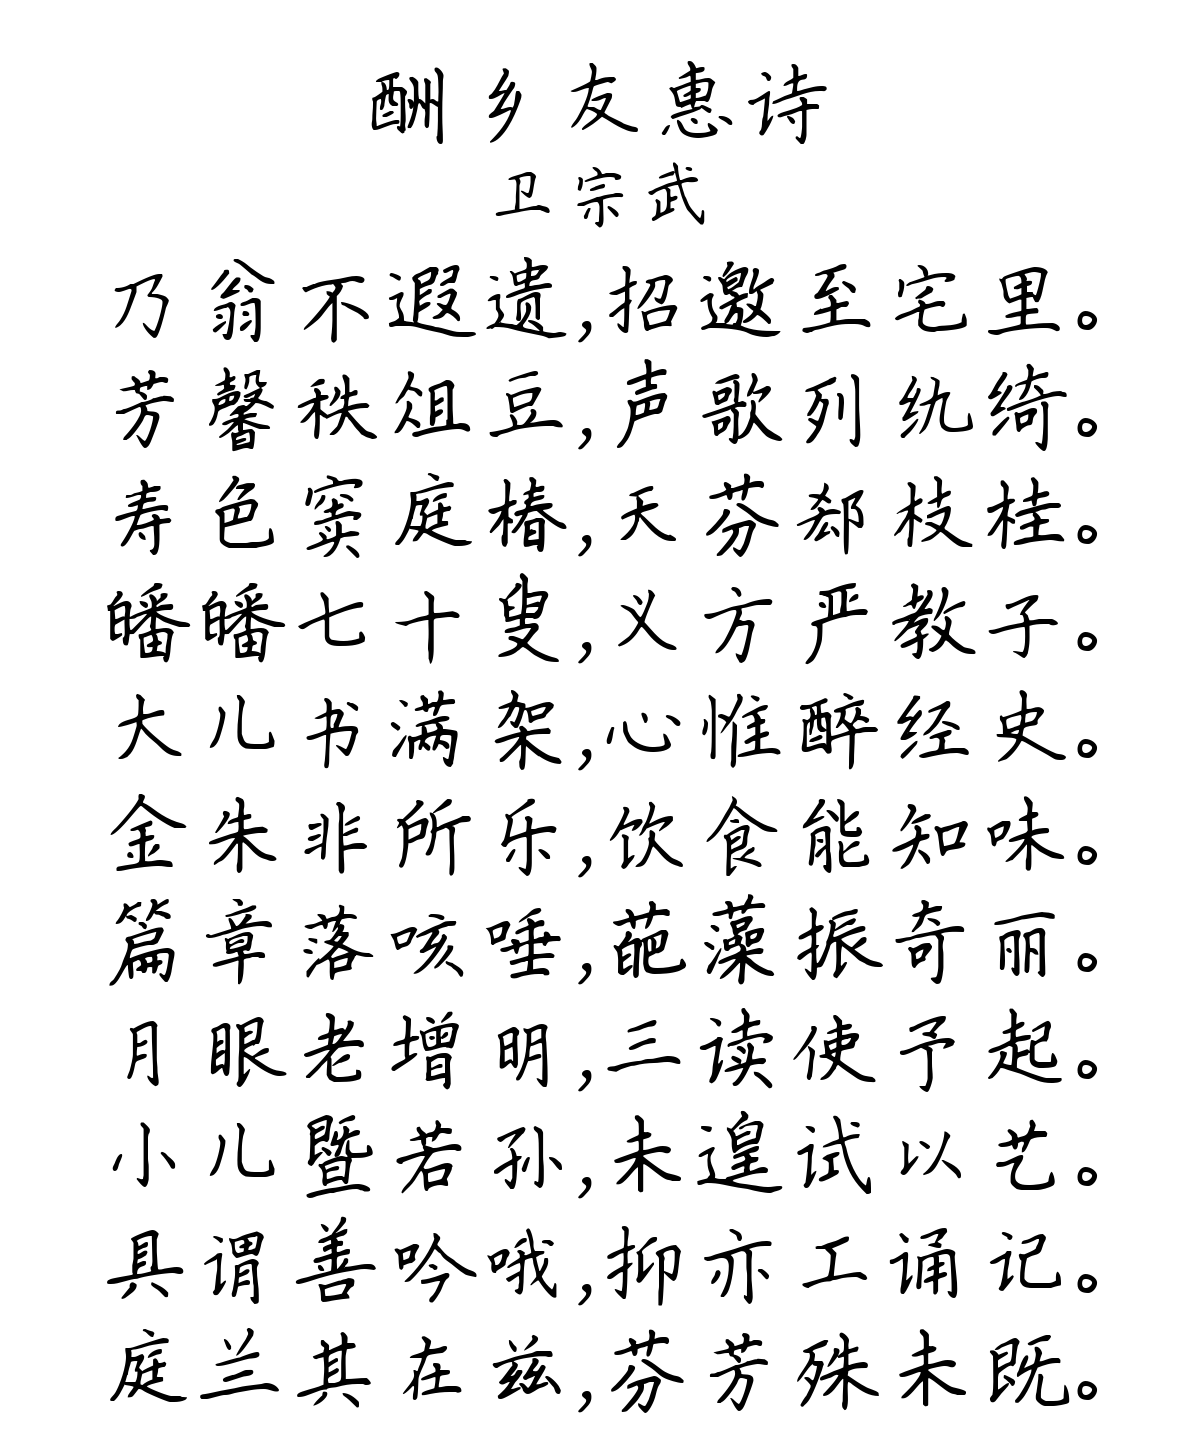 酬乡友惠诗
卫宗武
乃翁不遐遗,招邀至宅里。
芳馨秩俎豆,声歌列纨绮。
寿色窦庭椿,天芬郄枝桂。
皤皤七十叟,义方严教子。
大儿书满架,心惟醉经史。
金朱非所乐,饮食能知味。
篇章落咳唾,葩藻振奇丽。
月眼老增明,三读使予起。
小儿暨若孙,未遑试以艺。
具谓善吟哦,抑亦工诵记。
庭兰其在兹,芬芳殊未既。